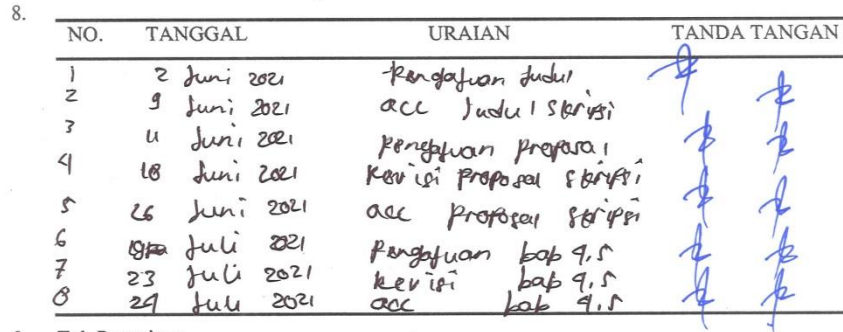 8.
NO. TANGGAL URAIAN TANDA TANGAN
1 2 Juni 2021 Pengajuan Judul
2 9 Juni 2021 acc Judul Skripsi
3 11 Juni 2021 Pengajuan Proposal
4 18 Juni 2021 Revisi Proposal Skripsi
5 26 Juni 2021 acc Proposal Skripsi
6 Juli 2021 Pengajuan bab 4,5
7 23 Juli 2021 Revisi bab 4,5
8 29 Juli 2021 acc bab 4,5